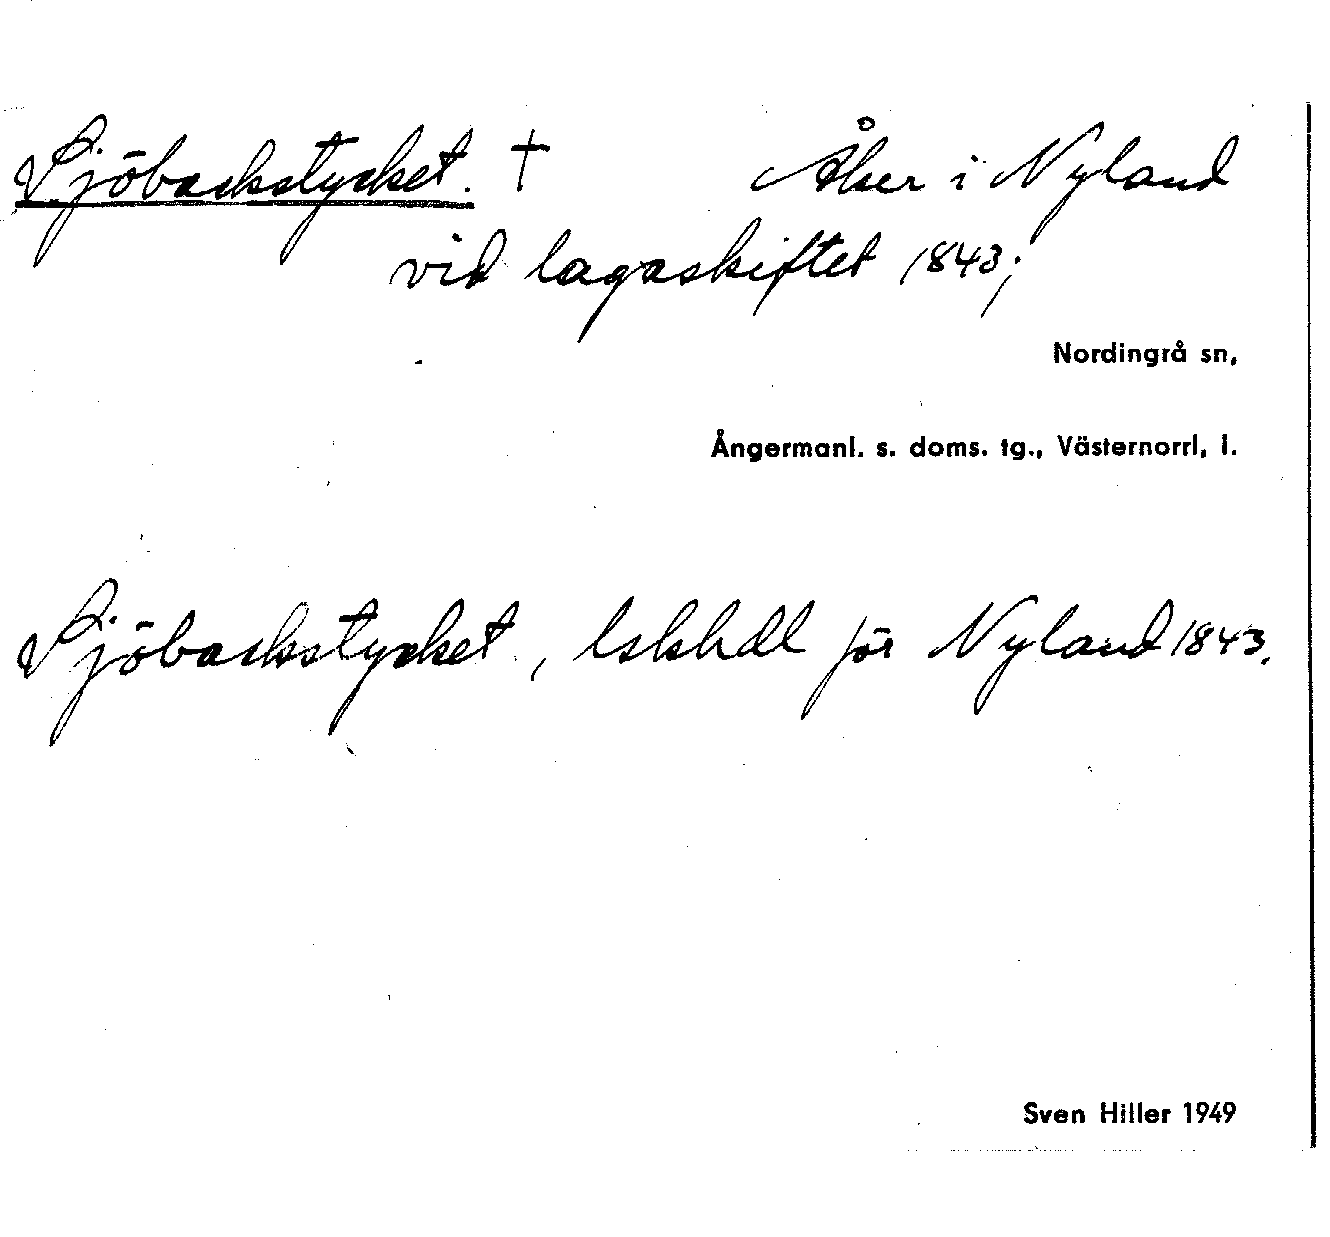 Sjöbacksstycket. † Åker i Nyland
vid lagaskiftet 1843;
Nordingrå sn,
Ångermanl. s. doms. tg., Västernorrl, l.
Sjöbacksstycket, lskhdl för Nyland 1843.
Sven Hiller 1949